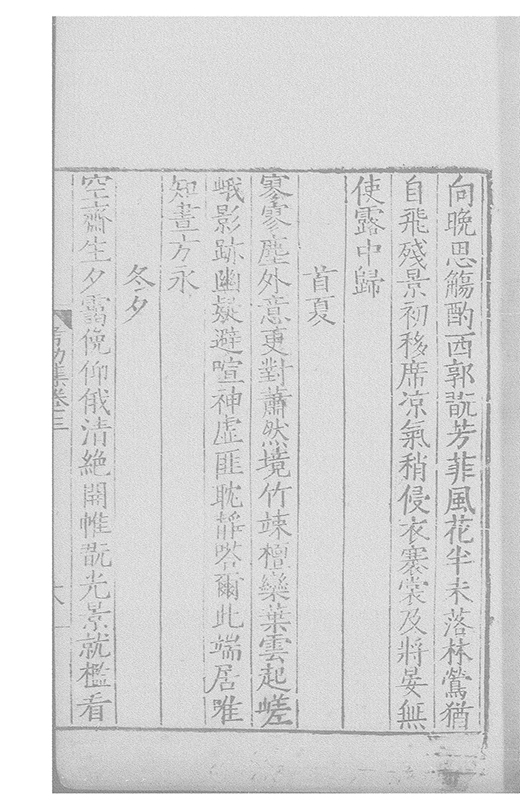 向晚思觴酌西郭翫芳菲風花半未落林鶯猶
自飛殘景初移席凉氣稍侵衣褰裳及將晏無
使露中歸
首夏
寥寥塵外意更對蕭然境竹竦檀欒葉雲起嵯
峨影跡幽疑避喧神虛匪耽靜嗒爾此端居唯
知晝方永
冬夕
空齋生夕靄俛仰俄清絶開帷翫光景就檻看
功集卷三